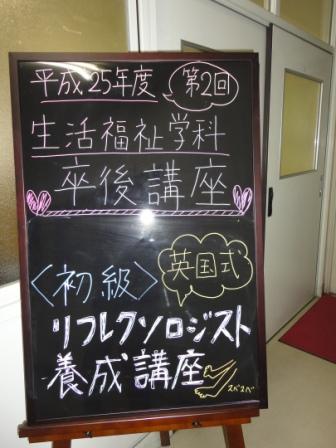 平成25年度 第2回
生活福祉学科
卒後講座
英国式
〈初級〉
リフレクソロジスト
養成講座
スベスベ